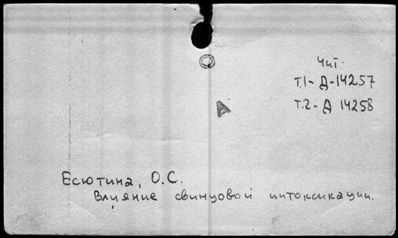 Чит.
Т.1- Д-14257
Т.2- Д 14258
А
Есютина, О.С.
Влияние свинцовой интоксикации.